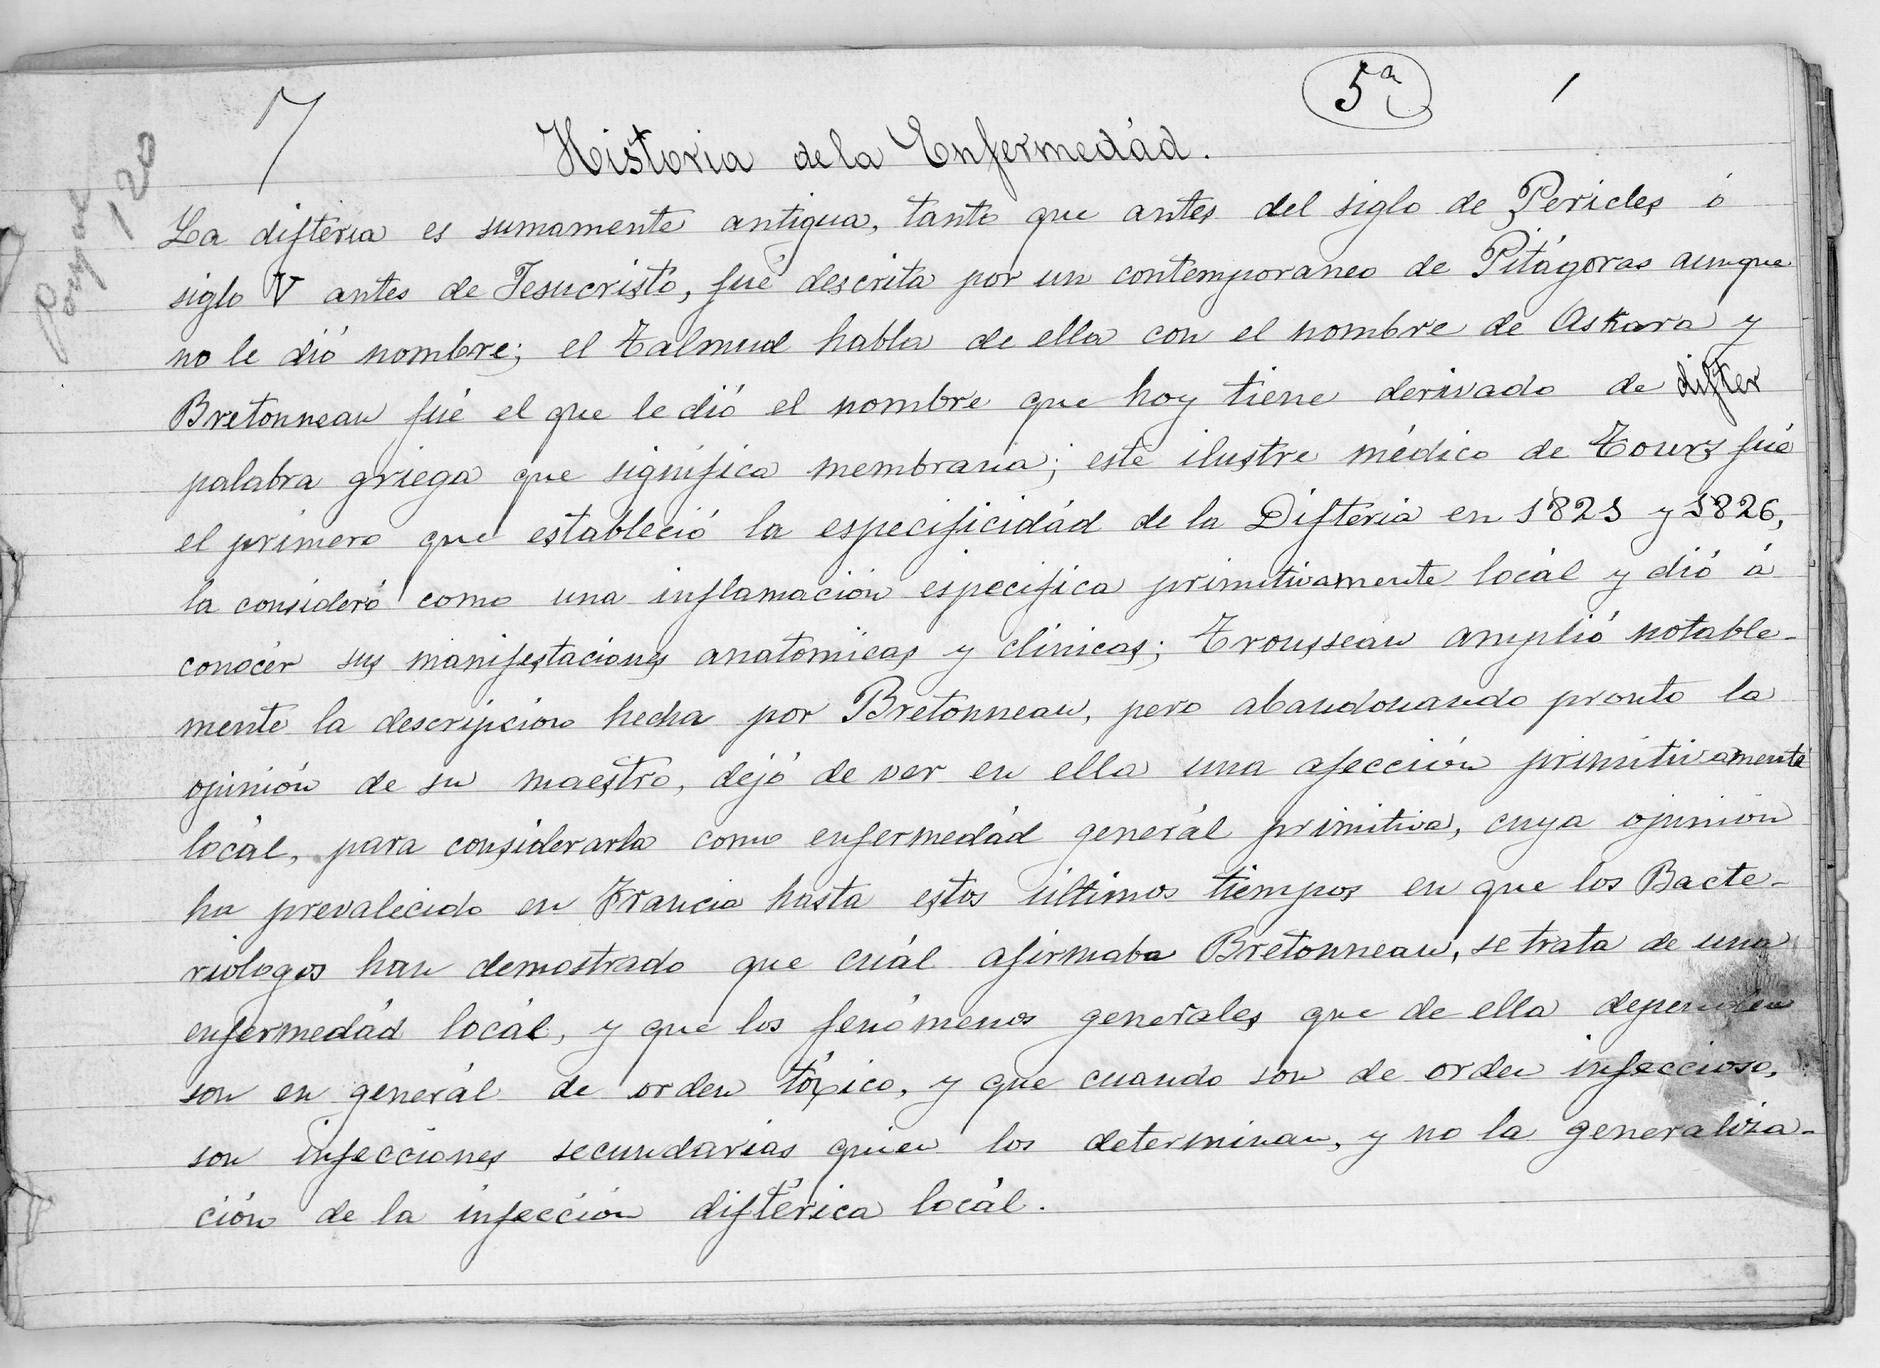 7
5ª
1
120
Historia de la Enfermedád.
La diftéria es sumamente antigua, tanto que antes del siglo de Pericles ó
siglo V antes de Jesucristo, fué descrita por un contemporaneo de Pitágoras aunque
no le dió nombre; el Talmud habla de ella con el nombre de Askara y
Bretonneau fué el que le dió el nombre que hoy tiene derivado de difter
palabra griega que significa membrana; este ilustre médico de Tours fué
el primero que estableció la especificidád de la Difteria en 1821 y 1826,
la consideró como una inflamación especifica primitivamente locál y dió á
conocer sus manifestaciones anatomicas y clínicas; Trousseau amplió notable-
mente la descripcion hecha por Bretonneau, pero abandonando pronto la
opinión de su maestro, dejó de ver en ella una afección primitivamente
locál, para considerarla como enfermedád generál primitiva, cuya opinión
ha prevalecido en Francia hasta estos últimos tiempos en que los Bacte-
riologos han demostrado que cuál afirmaba Bretonneau, se trata de una
enfermedád locál, y que los fenómenos generales que de ella dependen
son en generál de orden tóxico, y que cuando son de orden infeccioso,
son infecciones secundarias quien los determinan, y no la generaliza-
ción de la infección diftérica locál.